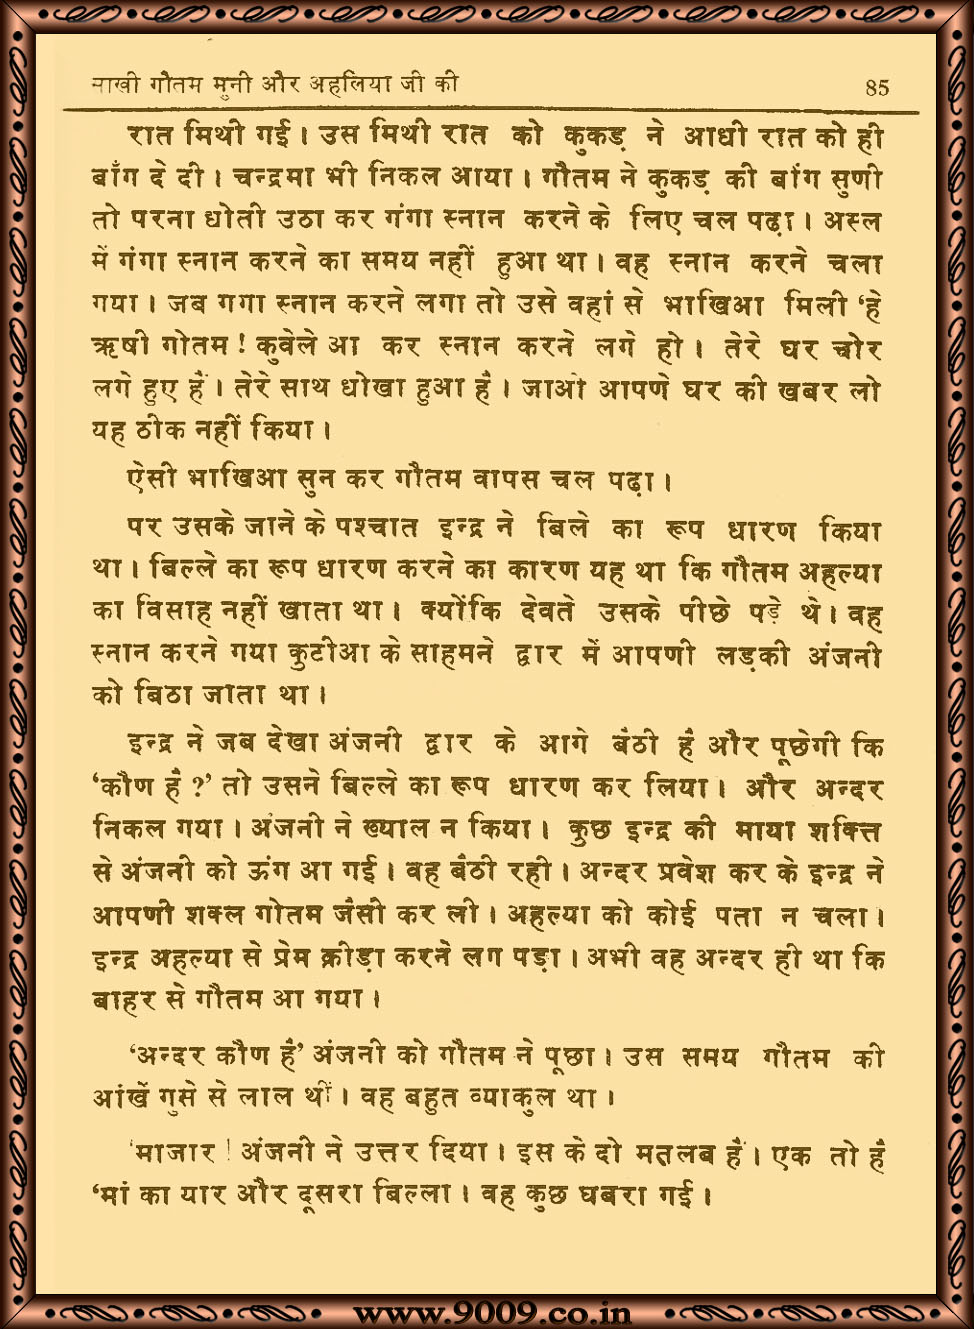 साखी गौतम मुनी और अहलिया जी की 85
रात मिथी गई। उस मिथी रात को कुकड़ ने आधी रात को ही
बाँग दे दी। चन्द्रमा भी निकल आया। गौतम ने कुकड़ की बांग सुणी
तो परना धोती उठा कर गंगा स्नान करने के लिए चल पढ़ा। अस्ल
में गंगा स्नान करने का समय नहीं हुआ था। वह स्नान करने चला
गया। जब गगा स्नान करने लगा तो उसे वहां से भाखिआ मिली ‘हे
ऋषी गोतम! कुवेले आ कर स्नान करने लगे हो। तेरे घर चोर
लगे हुए हैं। तेरे साथ धोखा हुआ है। जाओ आपणे घर की खबर लो
यह ठीक नहीं किया।
ऐसी भाखिआ सुन कर गौतम वापस चल पढ़ा।
पर उसके जाने के पश्चात इन्द्र ने बिले का रूप धारण किया
था। बिल्ले का रूप धारण करने का कारण यह था कि गौतम अहल्या
का विसाह नहीं खाता था। क्योंकि देवते उसके पीछे पड़े थे। वह
स्नान करने गया कुटीआ के साहमने द्वार में आपणी लड़की अंजनी
को बिठा जाता था।
इन्द्र ने जब देखा अंजनी द्वार के आगे बैठी है और पूछेगी कि
‘कौण है?’ तो उसने बिल्ले का रूप धारण कर लिया। और अन्दर
निकल गया। अंजनी ने ख्याल न किया। कुछ इन्द्र की माया शक्ति
से अंजनी को ऊंग आ गई। वह बैठी रही। अन्दर प्रवेश कर के इन्द्र ने
आपणी शक्ल गोतम जैसी कर ली। अहल्या को कोई पता न चला।
इन्द्र अहल्या से प्रेम क्रीड़ा करने लग पड़ा। अभी वह अन्दर ही था कि
बाहर से गौतम आ गया।
‘अन्दर कौण है’ अंजनी को गौतम ने पूछा। उस समय गौतम की
आंखें गुसे से लाल थीं। वह बहुत व्याकुल था।
‘माजार! अंजनी ने उत्तर दिया। इस के दो मतलब हैं। एक तो है
‘मां का यार और दूसरा बिल्ला। वह कुछ घबरा गई।
www.9009.co.in